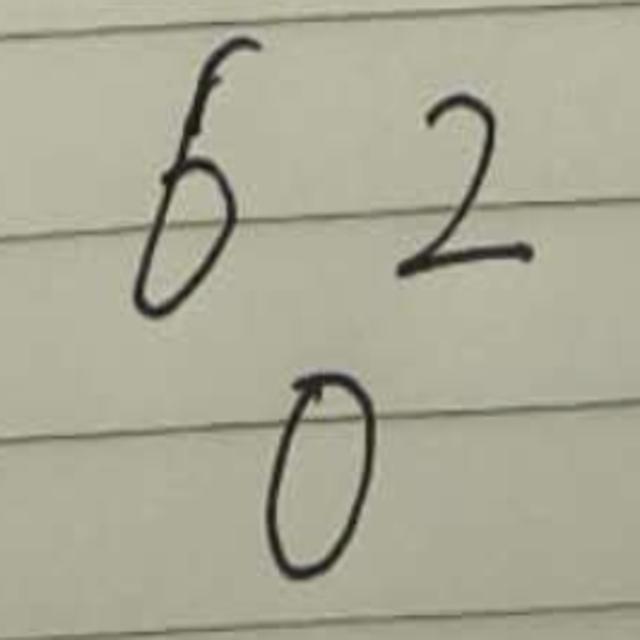 6 2
0